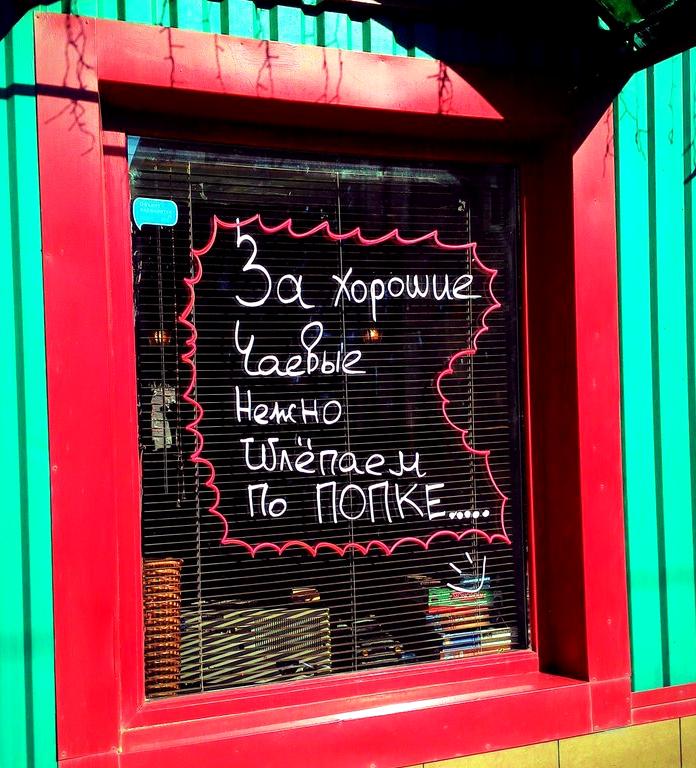 За хорошие
Чаевые
Нежно
Шлёпаем
По ПОПКЕ.....